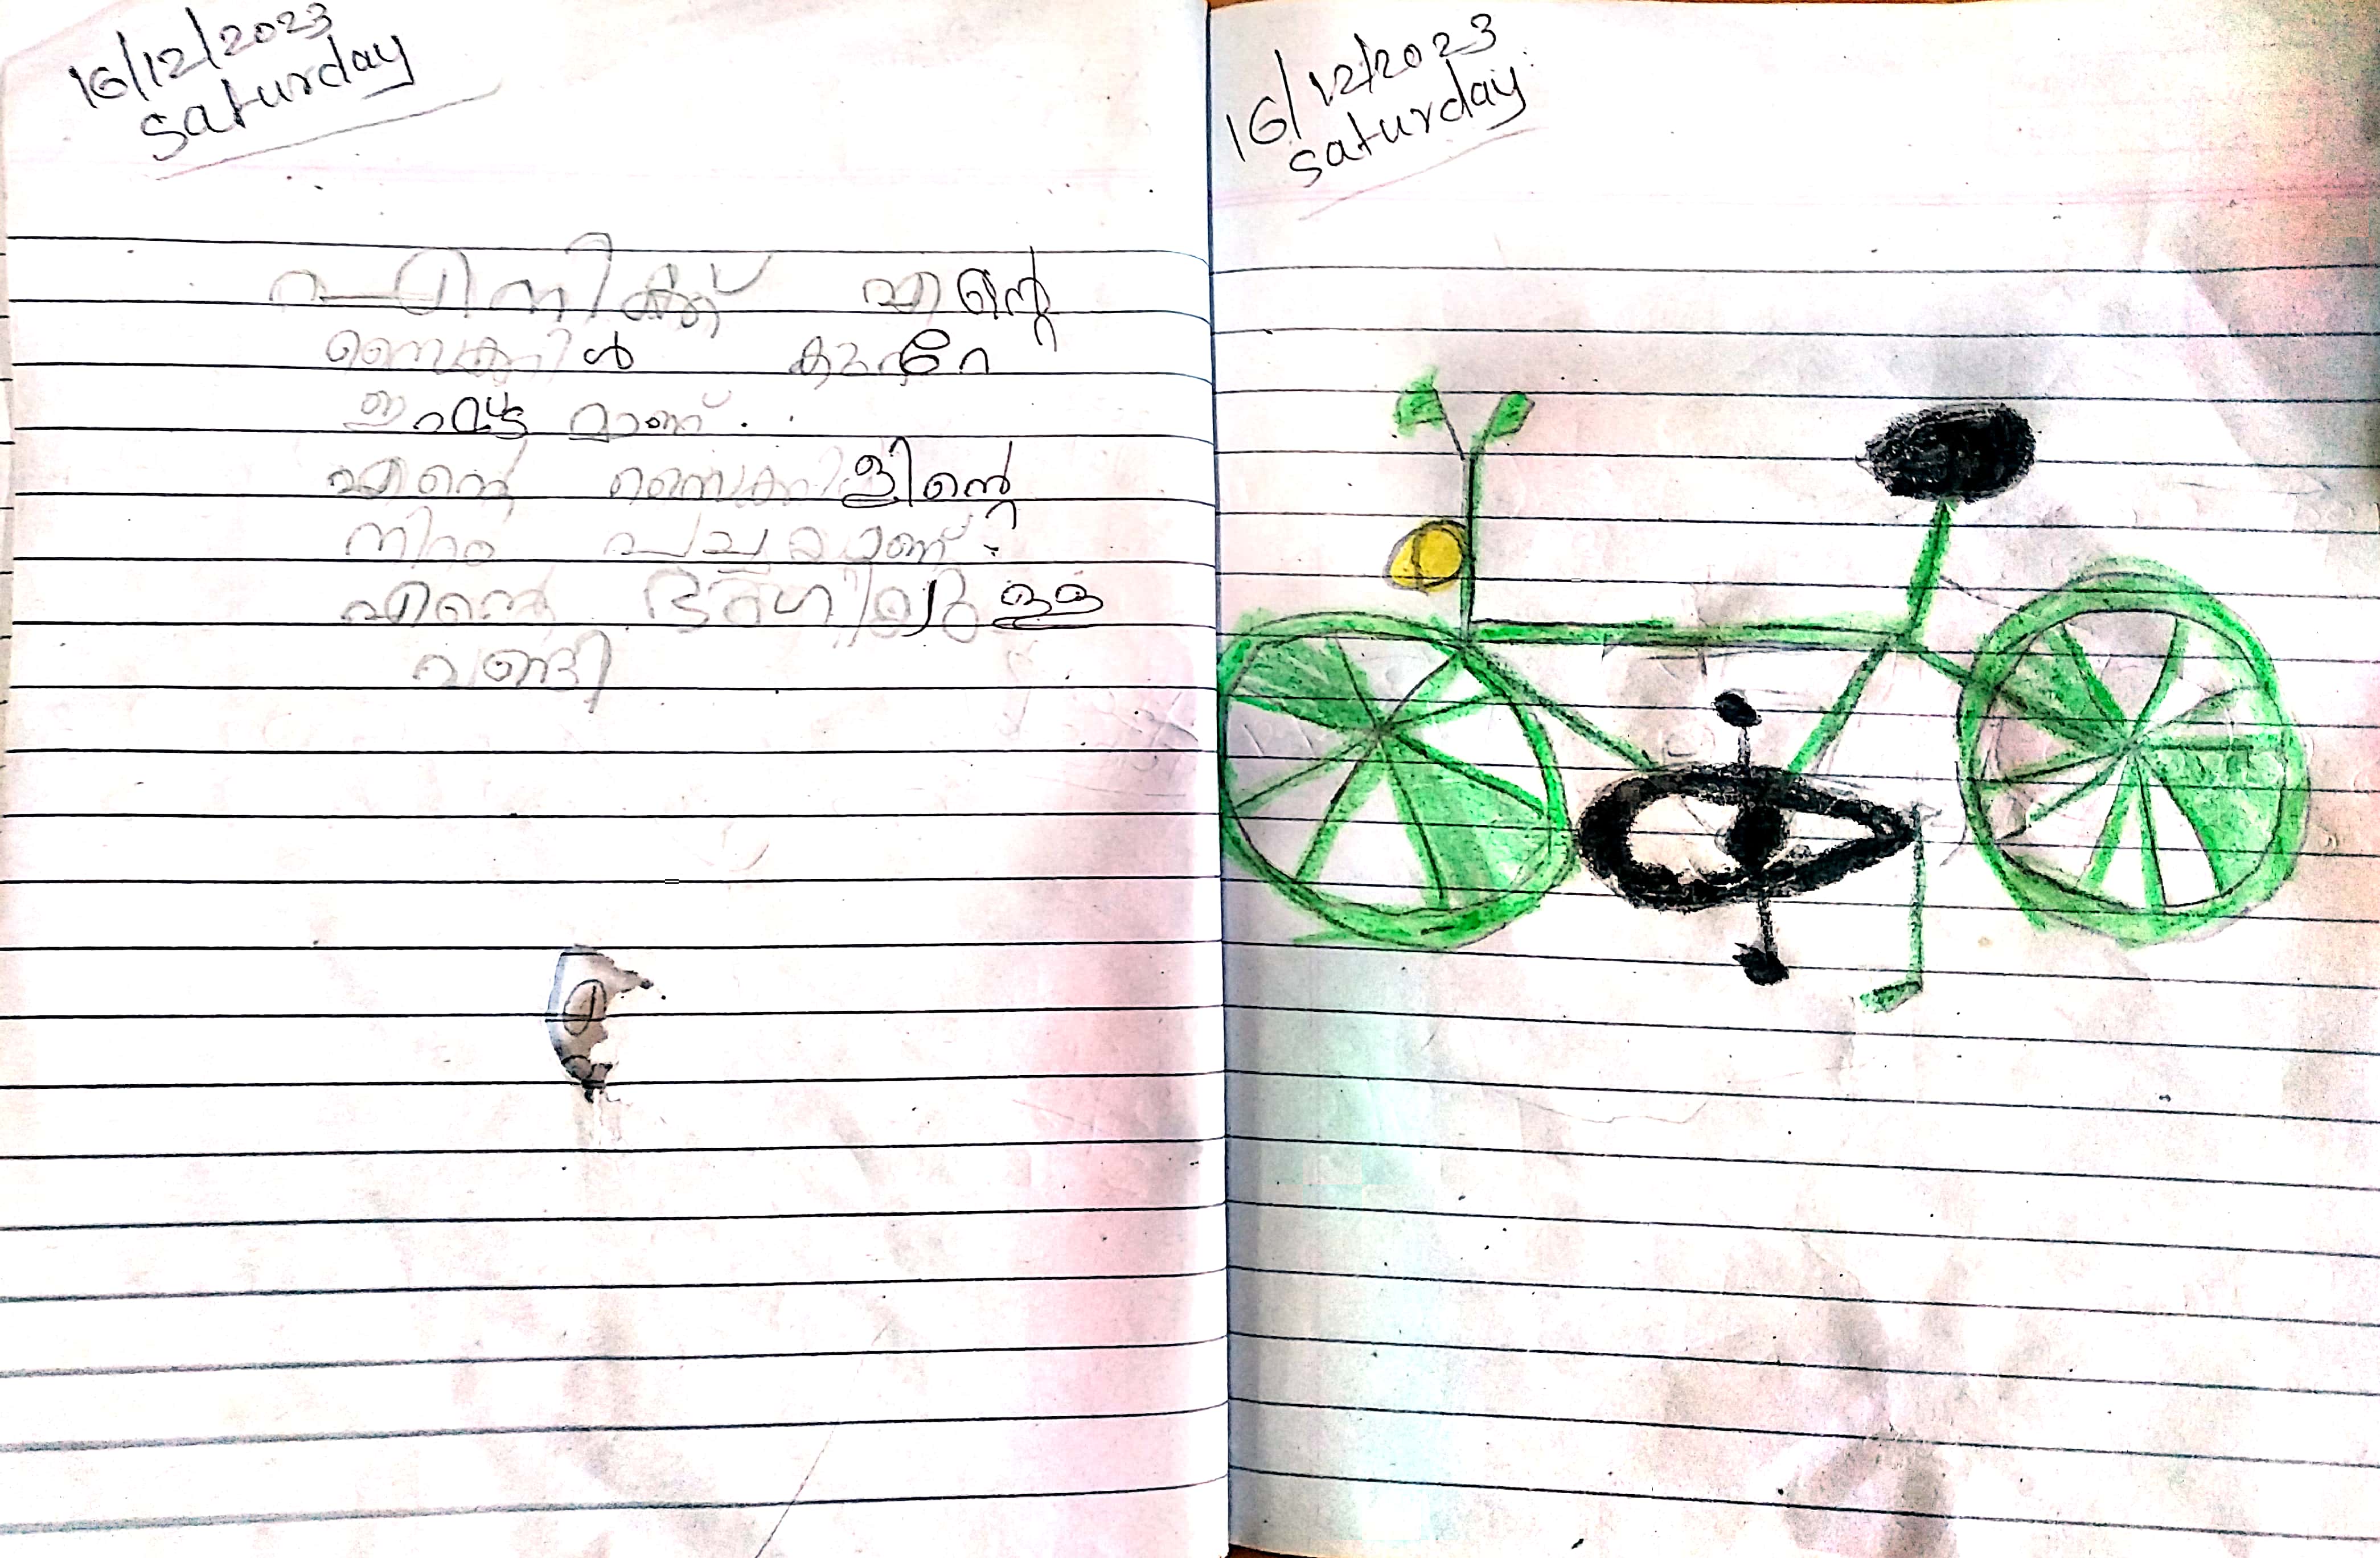 16/12/2023
Saturday
എനിക്ക് എന്റെ
സൈക്കിൾ കുറേ
ഇഷ്ട മാണ്.
എന്റെ സൈക്കിളിന്റെ
നിറം പച്ചയാണ്.
എന്റെ ഭംഗിയുള്ള
വണ്ടി
16/12/2023
Saturday